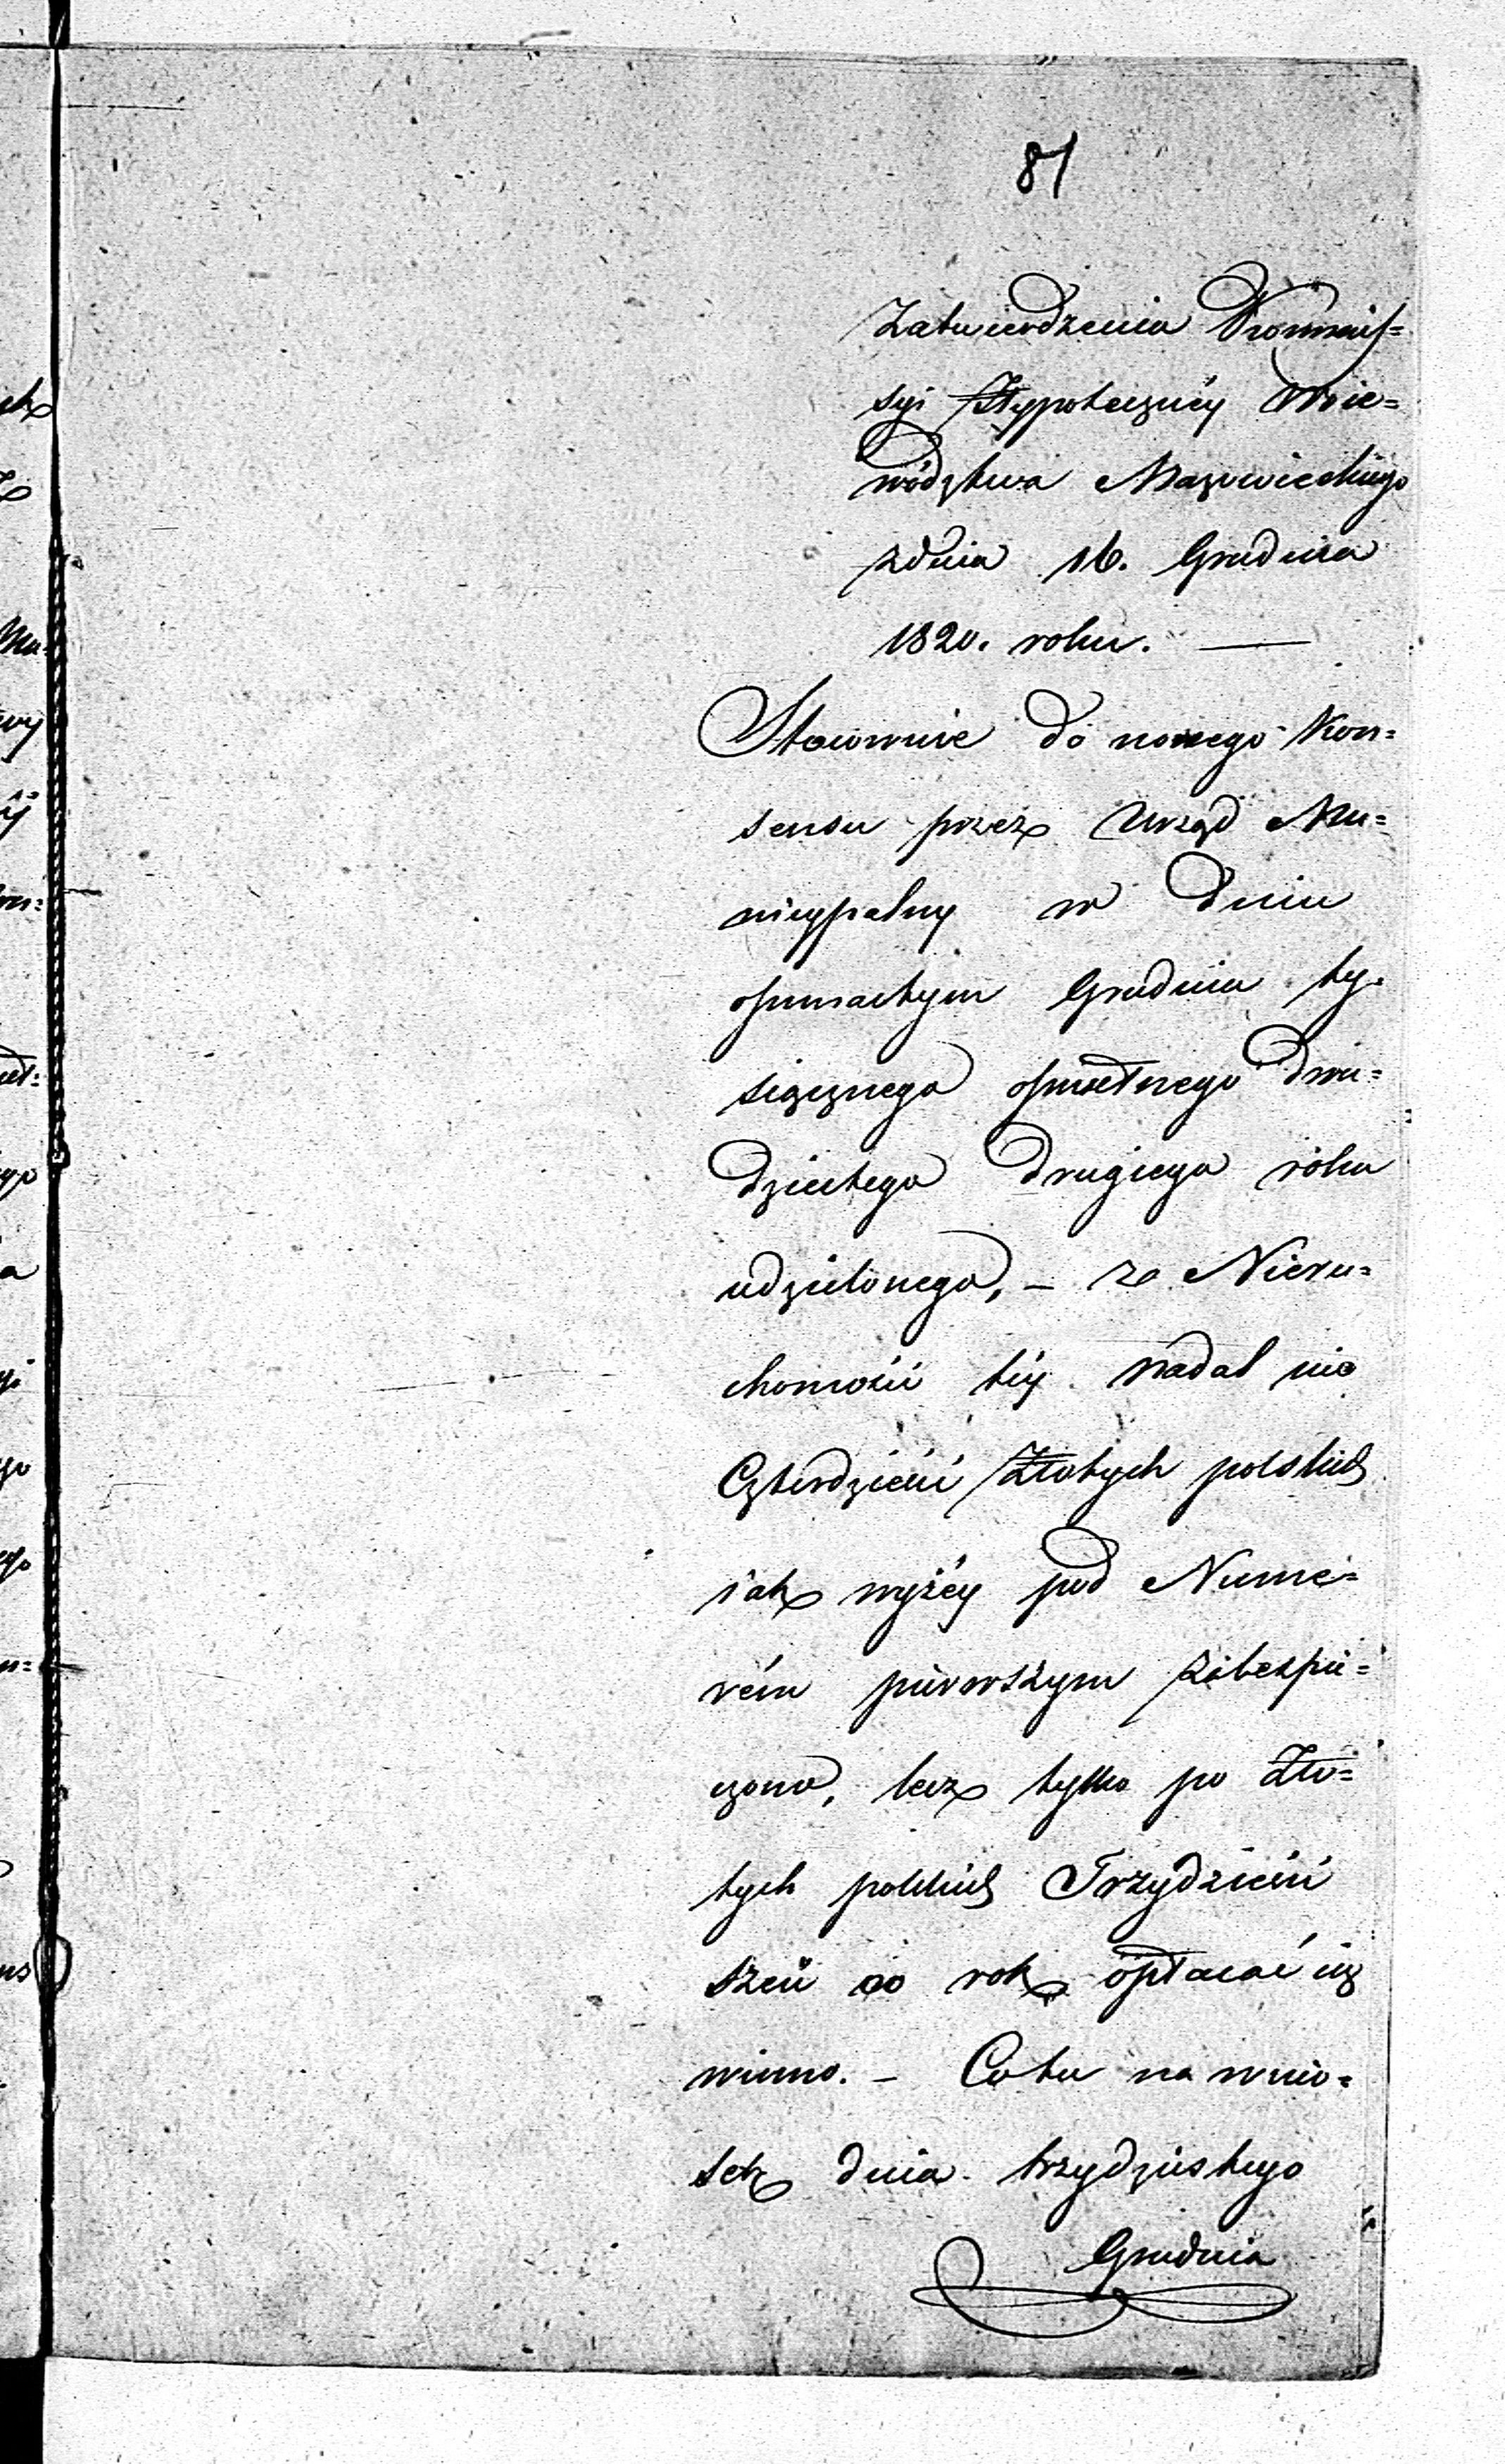 81
Zatwierdzenia Kommis=
syi Hypoteczney Woie=
wództwa Mazowieckiego
z dnia 16. Grudnia
1820. roku. —
Stosownie do nowego Kon=
sensu przez Urząd Mu=
nicypalny w dniu
osmnastym Grudnia ty=
siącznego osmsetnego dwu=
dziestego drugiego roku
udzielonego, – z Nieru=
chomości téy nadal nie
Czterdzieści Złotych polskich
iak wyżéy pod Nume=
rém pierwszym zabespie=
czono, lecz tylko po Zło=
tych polskich Trzydzieści
sześć co rok opłacać się
winno. – Co tu na wnio=
sek dnia trzydziestego
Grudnia